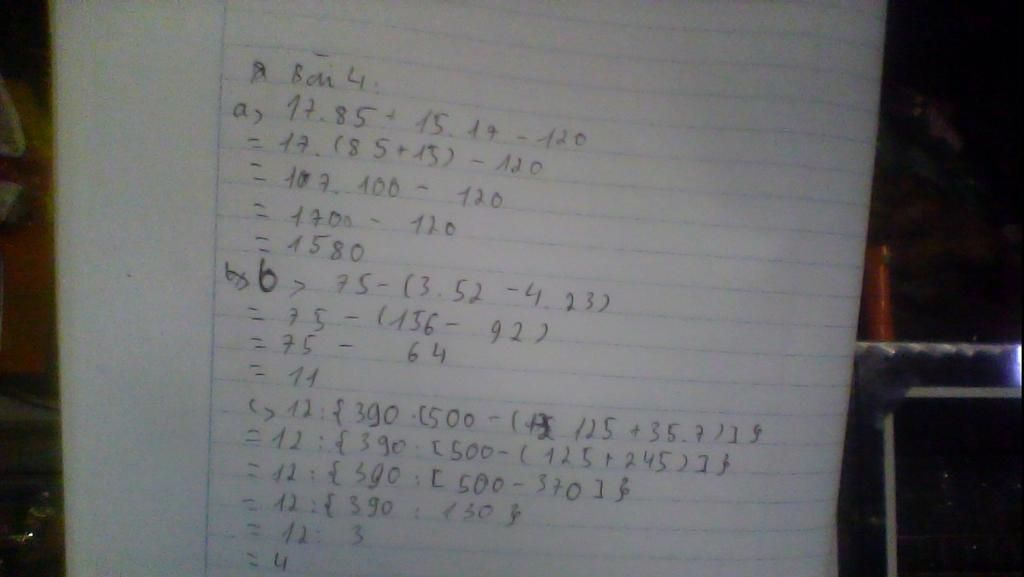 Bài 4:
a, 17.85 + 15.17 - 120
= 17.(85+15) - 120
= 17.100 - 120
= 1700 - 120
= 1580
b, 75-(3.52 -4.23)
= 75 - (156 - 92)
= 75 - 64
= 11
c, 12:{390:[500-(125+35.7)]}
= 12:{390:[500-(125+245)]}
= 12:{390:[500-370]}
= 12:{390:130}
= 12: 3
= 4